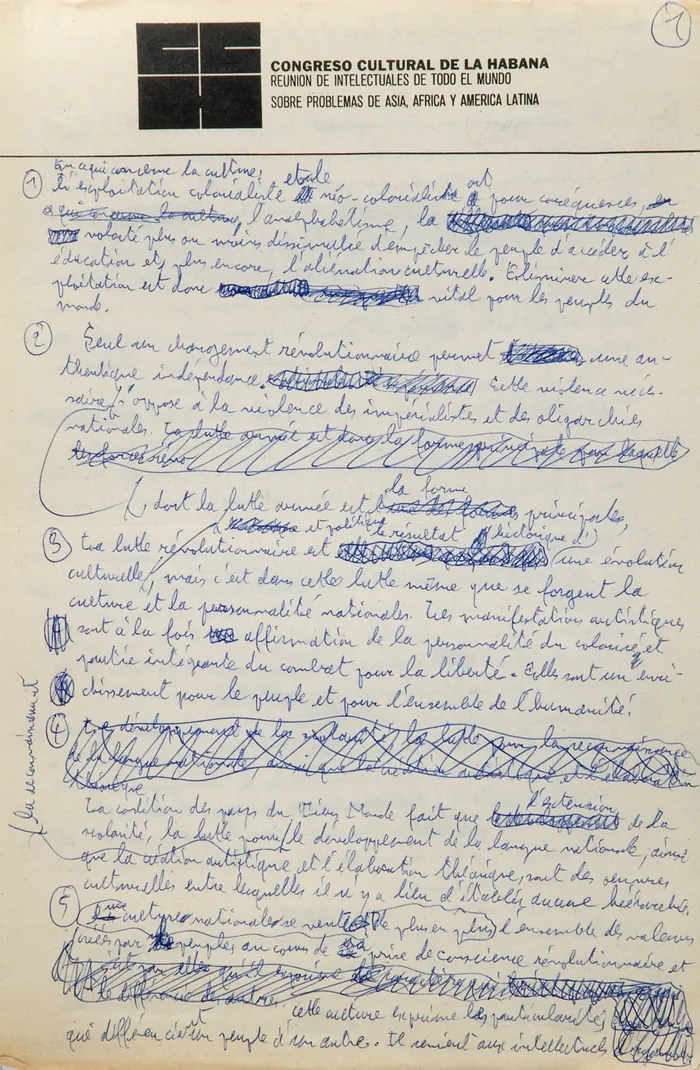 1
CONGRESO CULTURAL DE LA HABANA
REUNION DE INTELECTUALES DE TODO EL MUNDO
SOBRE PROBLEMAS DE ASIA, AFRICA Y AMERICA LATINA
En ce qui concerne la culture,
1 L'exploitation colonialiste et le néo-colonialiste ont pour conséquences,
l'analphabétisme, la
volonté plus ou moins dissimulée d'empêcher le peuple d'accéder à l'
éducation et, plus encore, l'aliénation culturelle. Eliminer cette ex-
ploitation est donc vital pour les peuples du
monde.
2 Seul un changement révolutionnaire permet une au-
thentique indépendance. Cette violence néces-
saire s'oppose à la violence des impérialistes et des oligarchies
nationales. La lutte armée est donc la forme principale par laquelle
dont la lutte armée est la forme principale,
et politique le résultat (historique d')
3 La lutte révolutionnaire est une évolution
culturelle, mais c'est dans cette lutte même que se forgent la
culture et la personnalité nationales. Les manifestations artistiques
sont à la fois affirmation de la personnalité du colonisé et
partie intégrante du combat pour la liberté. Elles sont un enri-
chissement pour le peuple et pour l'ensemble de l'humanité.
4 Le développement de la scolarité, la lutte pour la reconnaissance
de la langue nationale, ainsi que la création artistique et l'élaboration
théorique
La condition des pays du Tiers Monde fait que l'extension de la
scolarité, la lutte pour la reconnaissance et le développement de la langue nationale, ainsi
que la création artistique et l'élaboration théorique, sont des oeuvres
culturelles entre lesquelles il n'y a lieu d'établir aucune hiérarchie.
5 culture nationale se veut de plus en plus l'ensemble des valeurs
créées par peuples au cours de prise de conscience révolutionnaire et
cette culture exprime les particularités
qui différencient un peuple d'un autre. Il revient aux intellectuels